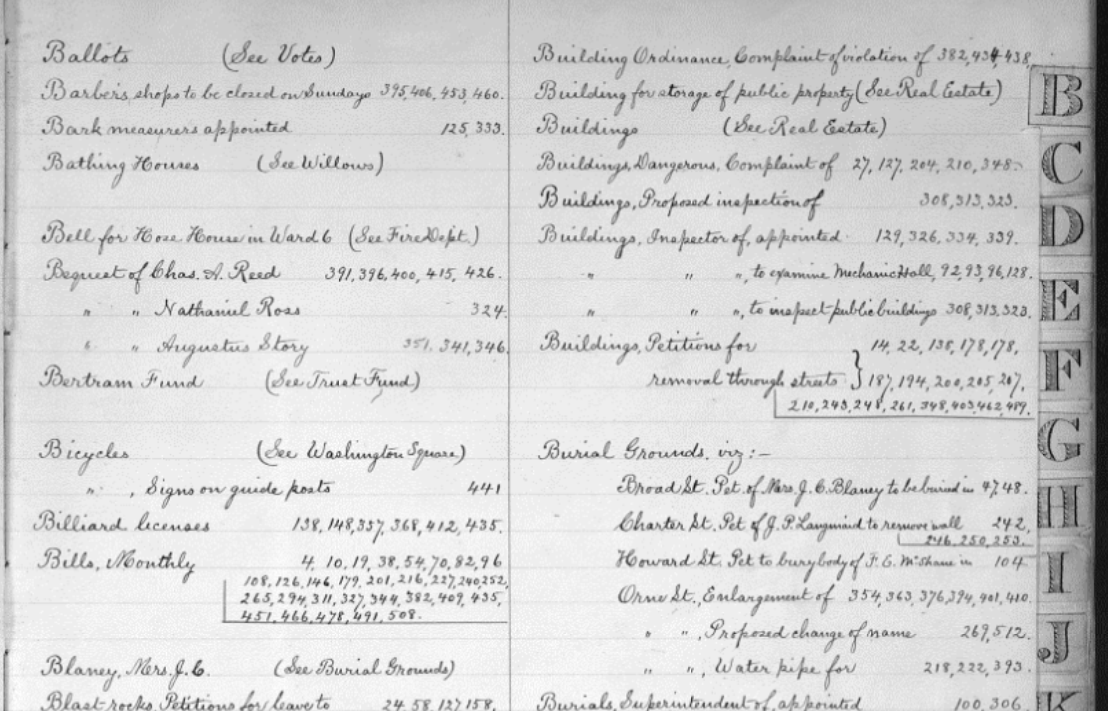 Ballots (See Votes)
Barbers, shops to be closed on Sundays 395, 406, 453, 460.
Bark measurers appointed 125, 333.
Bathing Houses (See Willows)
Bell for Hose House in Ward 6 (See Fire Dept.)
Bequest of Chas. A. Reed 391, 396, 400, 415, 426.
" " Nathaniel Ross 324.
" " Augustus Story 351, 341, 346.
Bertram Fund (See Trust Fund)
Bicycles (See Washington Square)
" , Signs on guide posts 441
Billiard licenses 138, 148, 337, 368, 412, 435.
Bills, Monthly 4, 10, 19, 38, 54, 70, 82, 96
108, 126, 146, 179, 201, 216, 227, 240, 252,
265, 294, 311, 327, 344, 382, 409, 435,
451, 466, 478, 491, 508.
Blaney, Mrs. J. C. (See Burial Grounds)
Blast rocks, Petitions for leave to 24 58, 127 158,
Building Ordinance, Complaint of violation of 382, 434, 438,
Building for storage of public property (See Real Estate)
Buildings (See Real Estate)
Buildings, Dangerous, Complaint of 27, 127, 204, 210, 348.
Buildings, Proposed inspection of 308, 313, 323.
Buildings, Inspector of, appointed 129, 326, 334, 339.
" " ", to examine Mechanic Hall, 92, 93, 96, 128.
" " ", to inspect public buildings 308, 313, 323.
Buildings, Petitions for 14, 22, 138, 178, 178,
removal through streets } 187, 194, 200, 205, 207,
210, 243, 248, 261, 348, 403, 462, 489.
Burial Grounds, viz:-
Broad St. Pet. of Mrs. J. C. Blaney to be buried in 47, 48.
Charter St. Pet of J. P. Langmaid to remove wall 242,
246, 250, 253.
Howard St. Pet to bury body of F. E. McShane in 104
Orne St., Enlargement of 354, 363, 376, 394, 401, 410.
" ", Proposed change of name 269, 512.
" ", Water pipe for 218, 222, 393.
Burials, Superintendent of, appointed 100, 306.
B
C
D
E
F
G
H
I
J
K